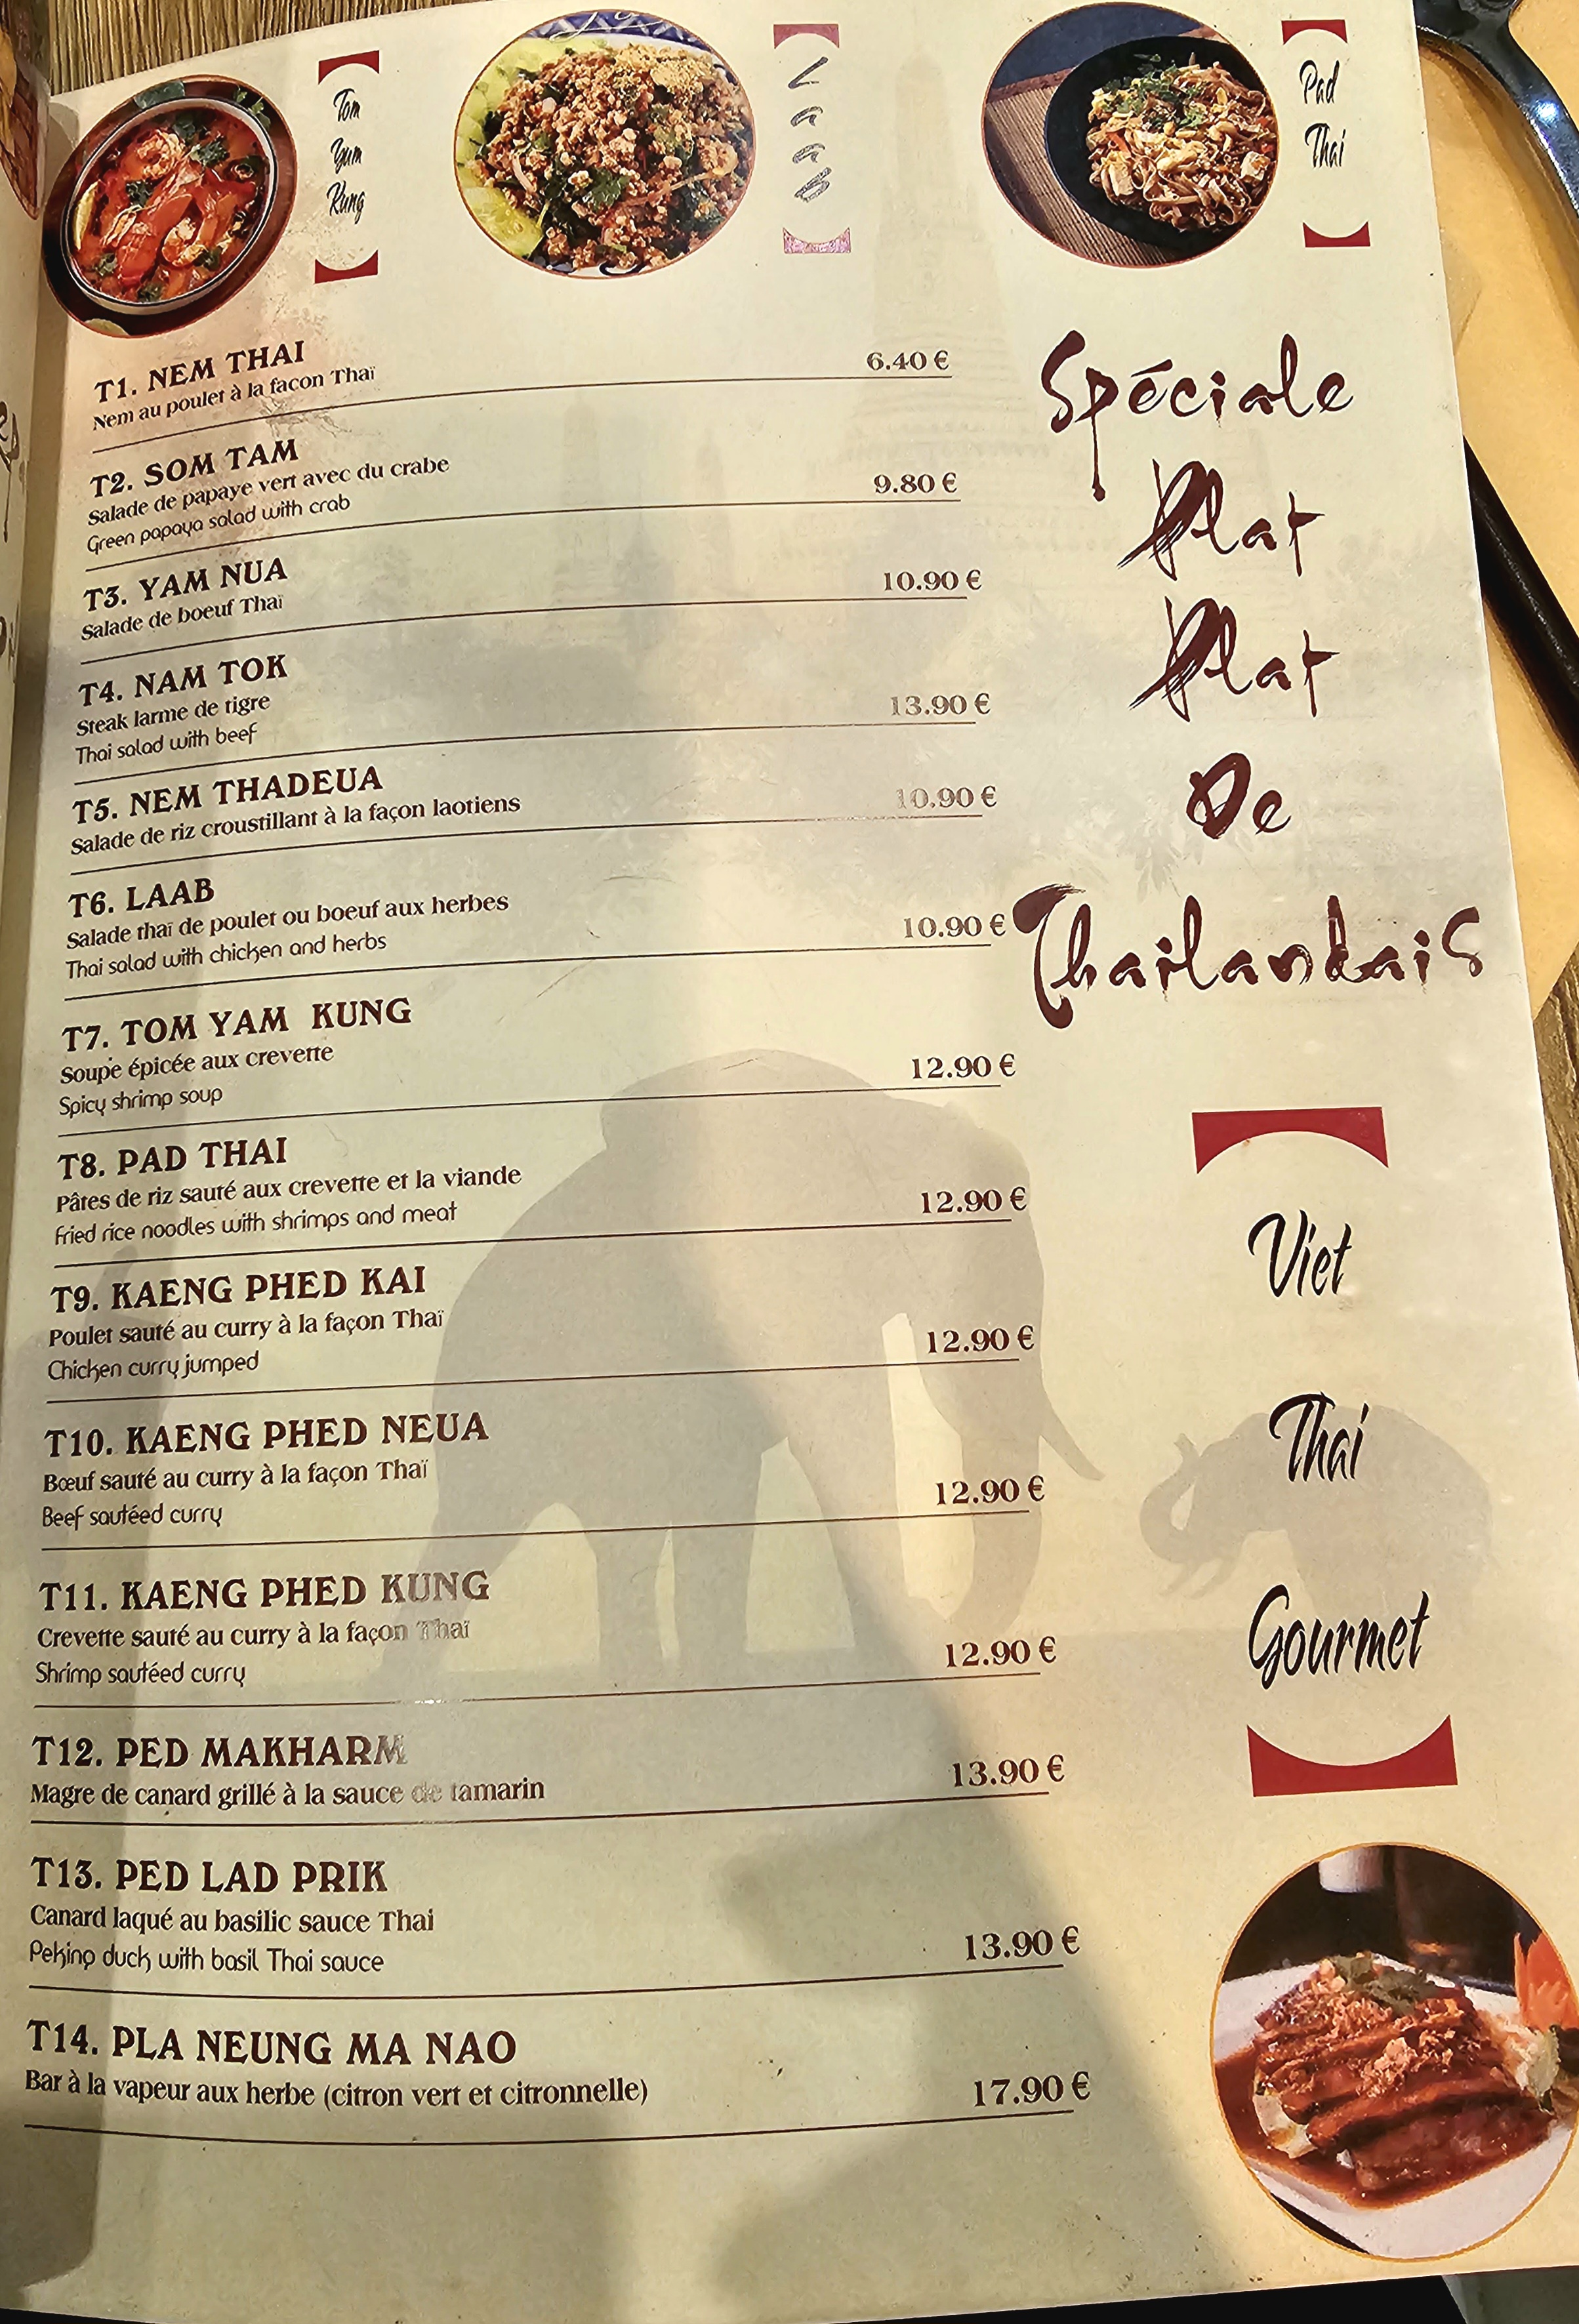 Tom
Yum
Kung
Laab
Pad
Thai
T1. NEM THAI
Nem au poulet à la facon Thaï
6.40 €
T2. SOM TAM
Salade de papaye vert avec du crabe
Green papaya salad with crab
9.80 €
T3. YAM NUA
Salade de boeuf Thaï
10.90 €
T4. NAM TOK
Steak larme de tigre
Thai salad with beef
13.90 €
T5. NEM THADEUA
Salade de riz croustillant à la façon laotiens
10.90 €
T6. LAAB
Salade thaï de poulet ou boeuf aux herbes
Thai salad with chicken and herbs
10.90 €
T7. TOM YAM KUNG
Soupe épicée aux crevette
Spicy shrimp soup
12.90 €
T8. PAD THAI
Pâtes de riz sauté aux crevette et la viande
Fried rice noodles with shrimps and meat
12.90 €
T9. KAENG PHED KAI
Poulet sauté au curry à la façon Thaï
Chicken curry jumped
12.90 €
T10. KAENG PHED NEUA
Bœuf sauté au curry à la façon Thaï
Beef sautéed curry
12.90 €
T11. KAENG PHED KUNG
Crevette sauté au curry à la façon Thaï
Shrimp sautéed curry
12.90 €
T12. PED MAKHARM
Magre de canard grillé à la sauce de tamarin
13.90 €
T13. PED LAD PRIK
Canard laqué au basilic sauce Thai
Peking duck with basil Thai sauce
13.90 €
T14. PLA NEUNG MA NAO
Bar à la vapeur aux herbe (citron vert et citronnelle)
17.90 €
Spéciale
Plat
Plat
De
Thailandais
Viet
Thai
Gourmet